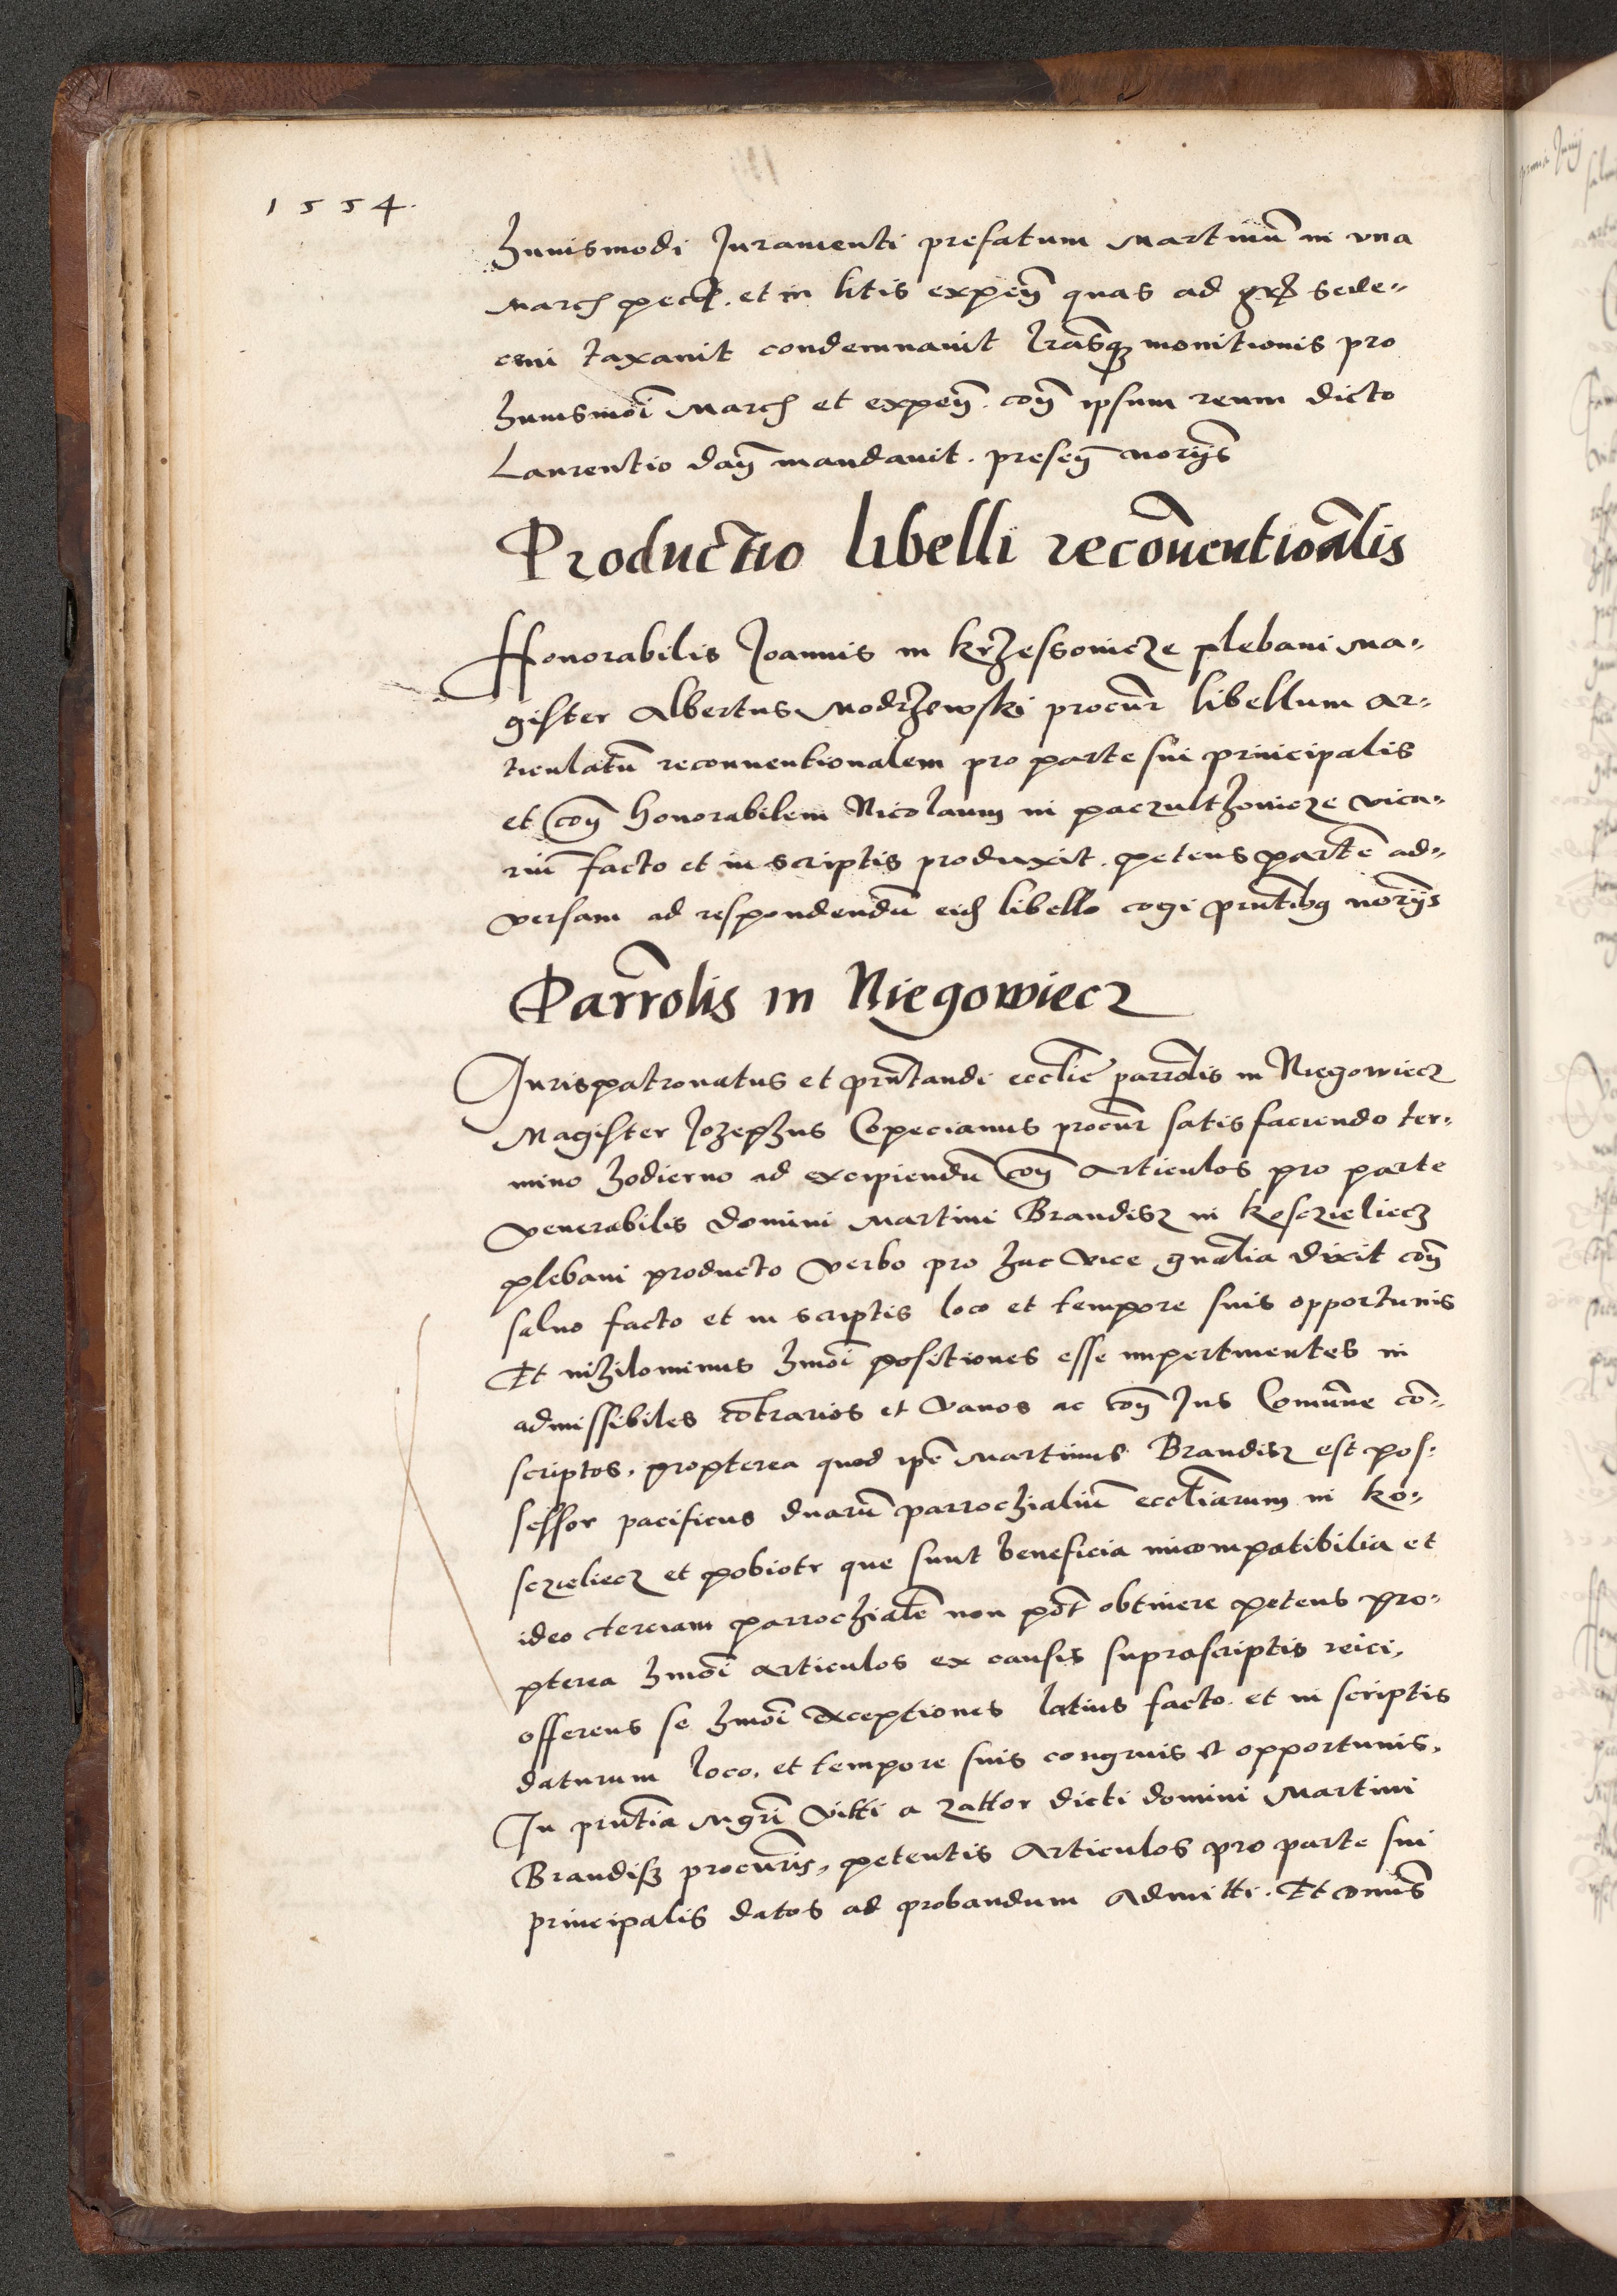 1554.
Huiusmodi Juramenti prefatum Martinũ in vna
March pecũ. et in litis expeñ quas ad gr̃ sede-
cim taxauit condemnauit l̃rasq; monitionis pro
huiusmõi March et expeñ. coñ ipsum reum dicto
Laurentio dañ mandauit. preseñ norijs
Productio libelli recõuentioãlis
Honorabilis Joannis in Krzessouicze plebani Ma-
gister Albertus Modrzewski procur̃ libellum ar-
ticulatũ reconuentionalem pro parte sui principalis
et coñ honorabilem Nicolaum in paczulthouicze vica-
riũ facto et in scriptis produxit. petens partẽ ad-
versam ad respondendũ eid libello cogi pñtibus norijs
Parrõlis in Niegowiecz
Jurispatronatus et pñtandi eccliẽ parrõlis in Niegowiecz
Magister Jozephus Copecianus procur̃ satisfaciendo ter-
mino hodierno ad excipiendũ coñ articulos pro parte
venerabilis domini Martini Brandisz in Kosczieliecz
plebani producto verbo pro hac vice gñalia dixit coñ
saluo facto et in scriptis loco et tempore suis opportunis
Et nihilominus hmõi positiones esse impertinentes in
admissibiles cõtrarios et vanos ac coñ Jus Comũne cõ-
scriptos, propterea quod ipẽ Martinus Brandisz est pos-
sessor pacificus duarũ parrochialiũ eccliarum in Ko-
sczieliecz et pobiotr que sunt beneficia incompatibilia et
ideo terciam parrochialẽ non põt obtinere petens pro-
pterea hmõi articulos ex causis suprascriptis reici,
offerens se hmõi exceptiones latius facto. et in scriptis
daturum loco, et tempore suis congruis et opportunis,
In pñtia Mgrĩ Vitti a Zattor dicti domini Martini
Brandisz procuris, petentis Articulos pro parte sui
principalis datos ad probandum Admitti. Et Dñus